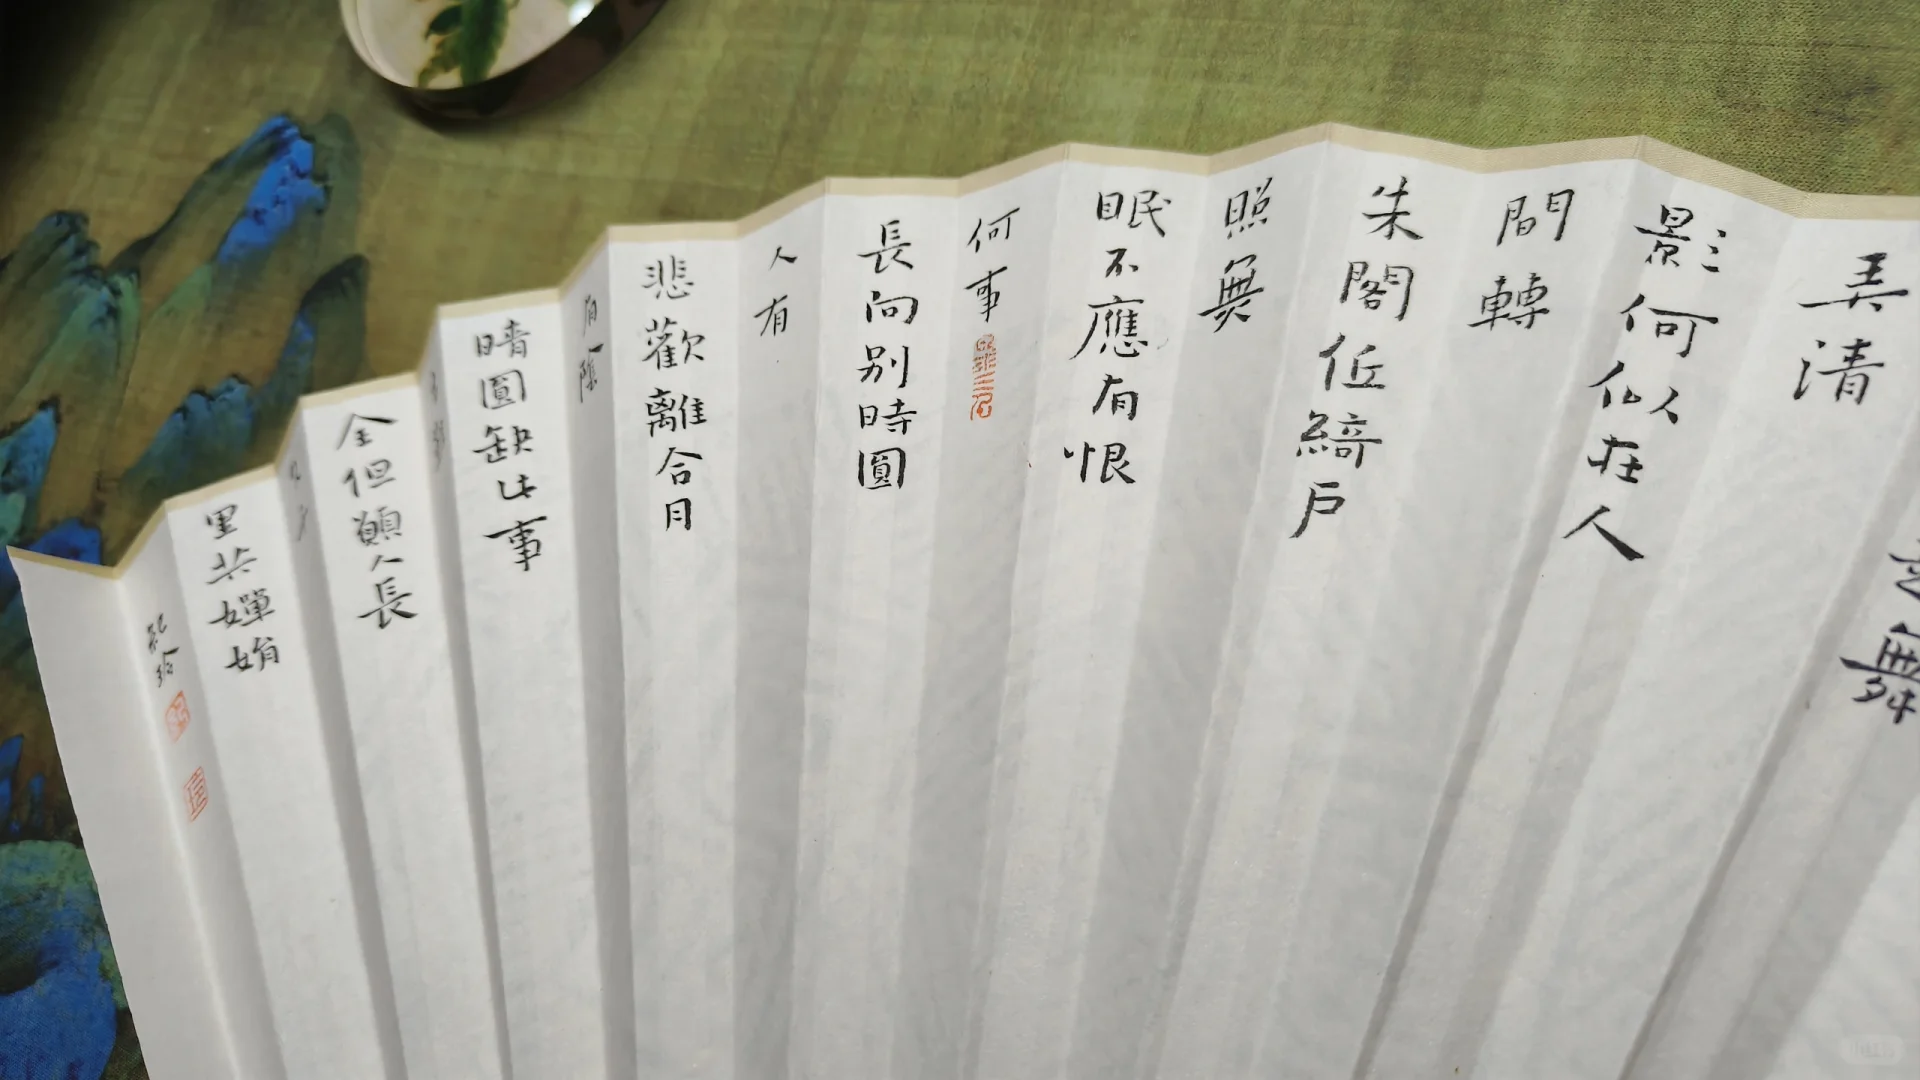 舞
弄清
影何似在人
間轉
朱閣低綺戶
照無
眠不應有恨
何事
長向别時圓
人有
悲歡離合月
有陰
晴圓缺此事
全但願人長
里共嬋娟